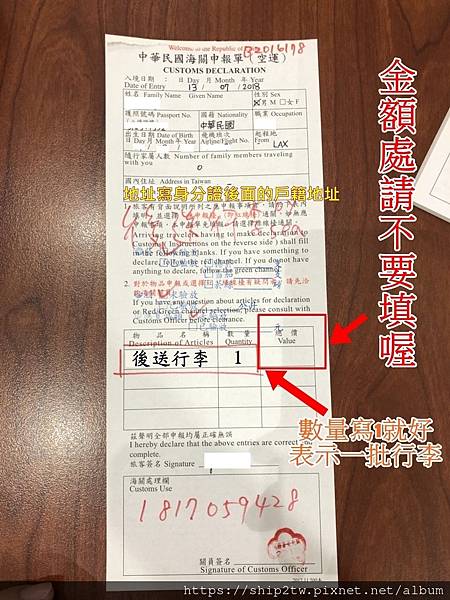 Welcome to the Republic of
B2016198
中華民國海關申報單(空運)
CUSTOMS DECLARATION
入境日期 : 日 Day 月 Month 年 Year
Date of Entry 13 / 07 / 2018
姓名 Family Name Given Name
性別 Sex
男 M 女 F
護照號碼 Passport No.
國籍 Nationality
中華民國
職業 Occupation
出生日期 Date of Birth
日 Day 月 Month 年 Year
飛機班次
Airline/Flight No.
起程地
From LAX
隨行家屬人數 Number of family members traveling
with you
0
國內住址 Address in Taiwan
地址寫身分證後面的戶籍地址
Arriving travelers having to make declaration
Customs Instructions on the reverse side ) shall fill
in the following blanks. If you have something to
declare, follow the red channel. If you do not have
anything to declare, follow the green channel.
If you have any question about articles for declaration
or Red/Green channel selection, please consult with
Customs Officer before clearance.
物品名稱
Description of Articles
數量
Quantity
總價
Value
後送行李 1
金額處請不要填喔
數量寫1就好
表示一批行李
茲聲明全部申報均屬正確無誤
I hereby declare that the above entries are correct and
complete.
旅客簽名 Signature
海關處理欄
Customs Use
1817059428
關員簽名
Signature of Customs Officer
https://ship2tw.pixnet.net/album